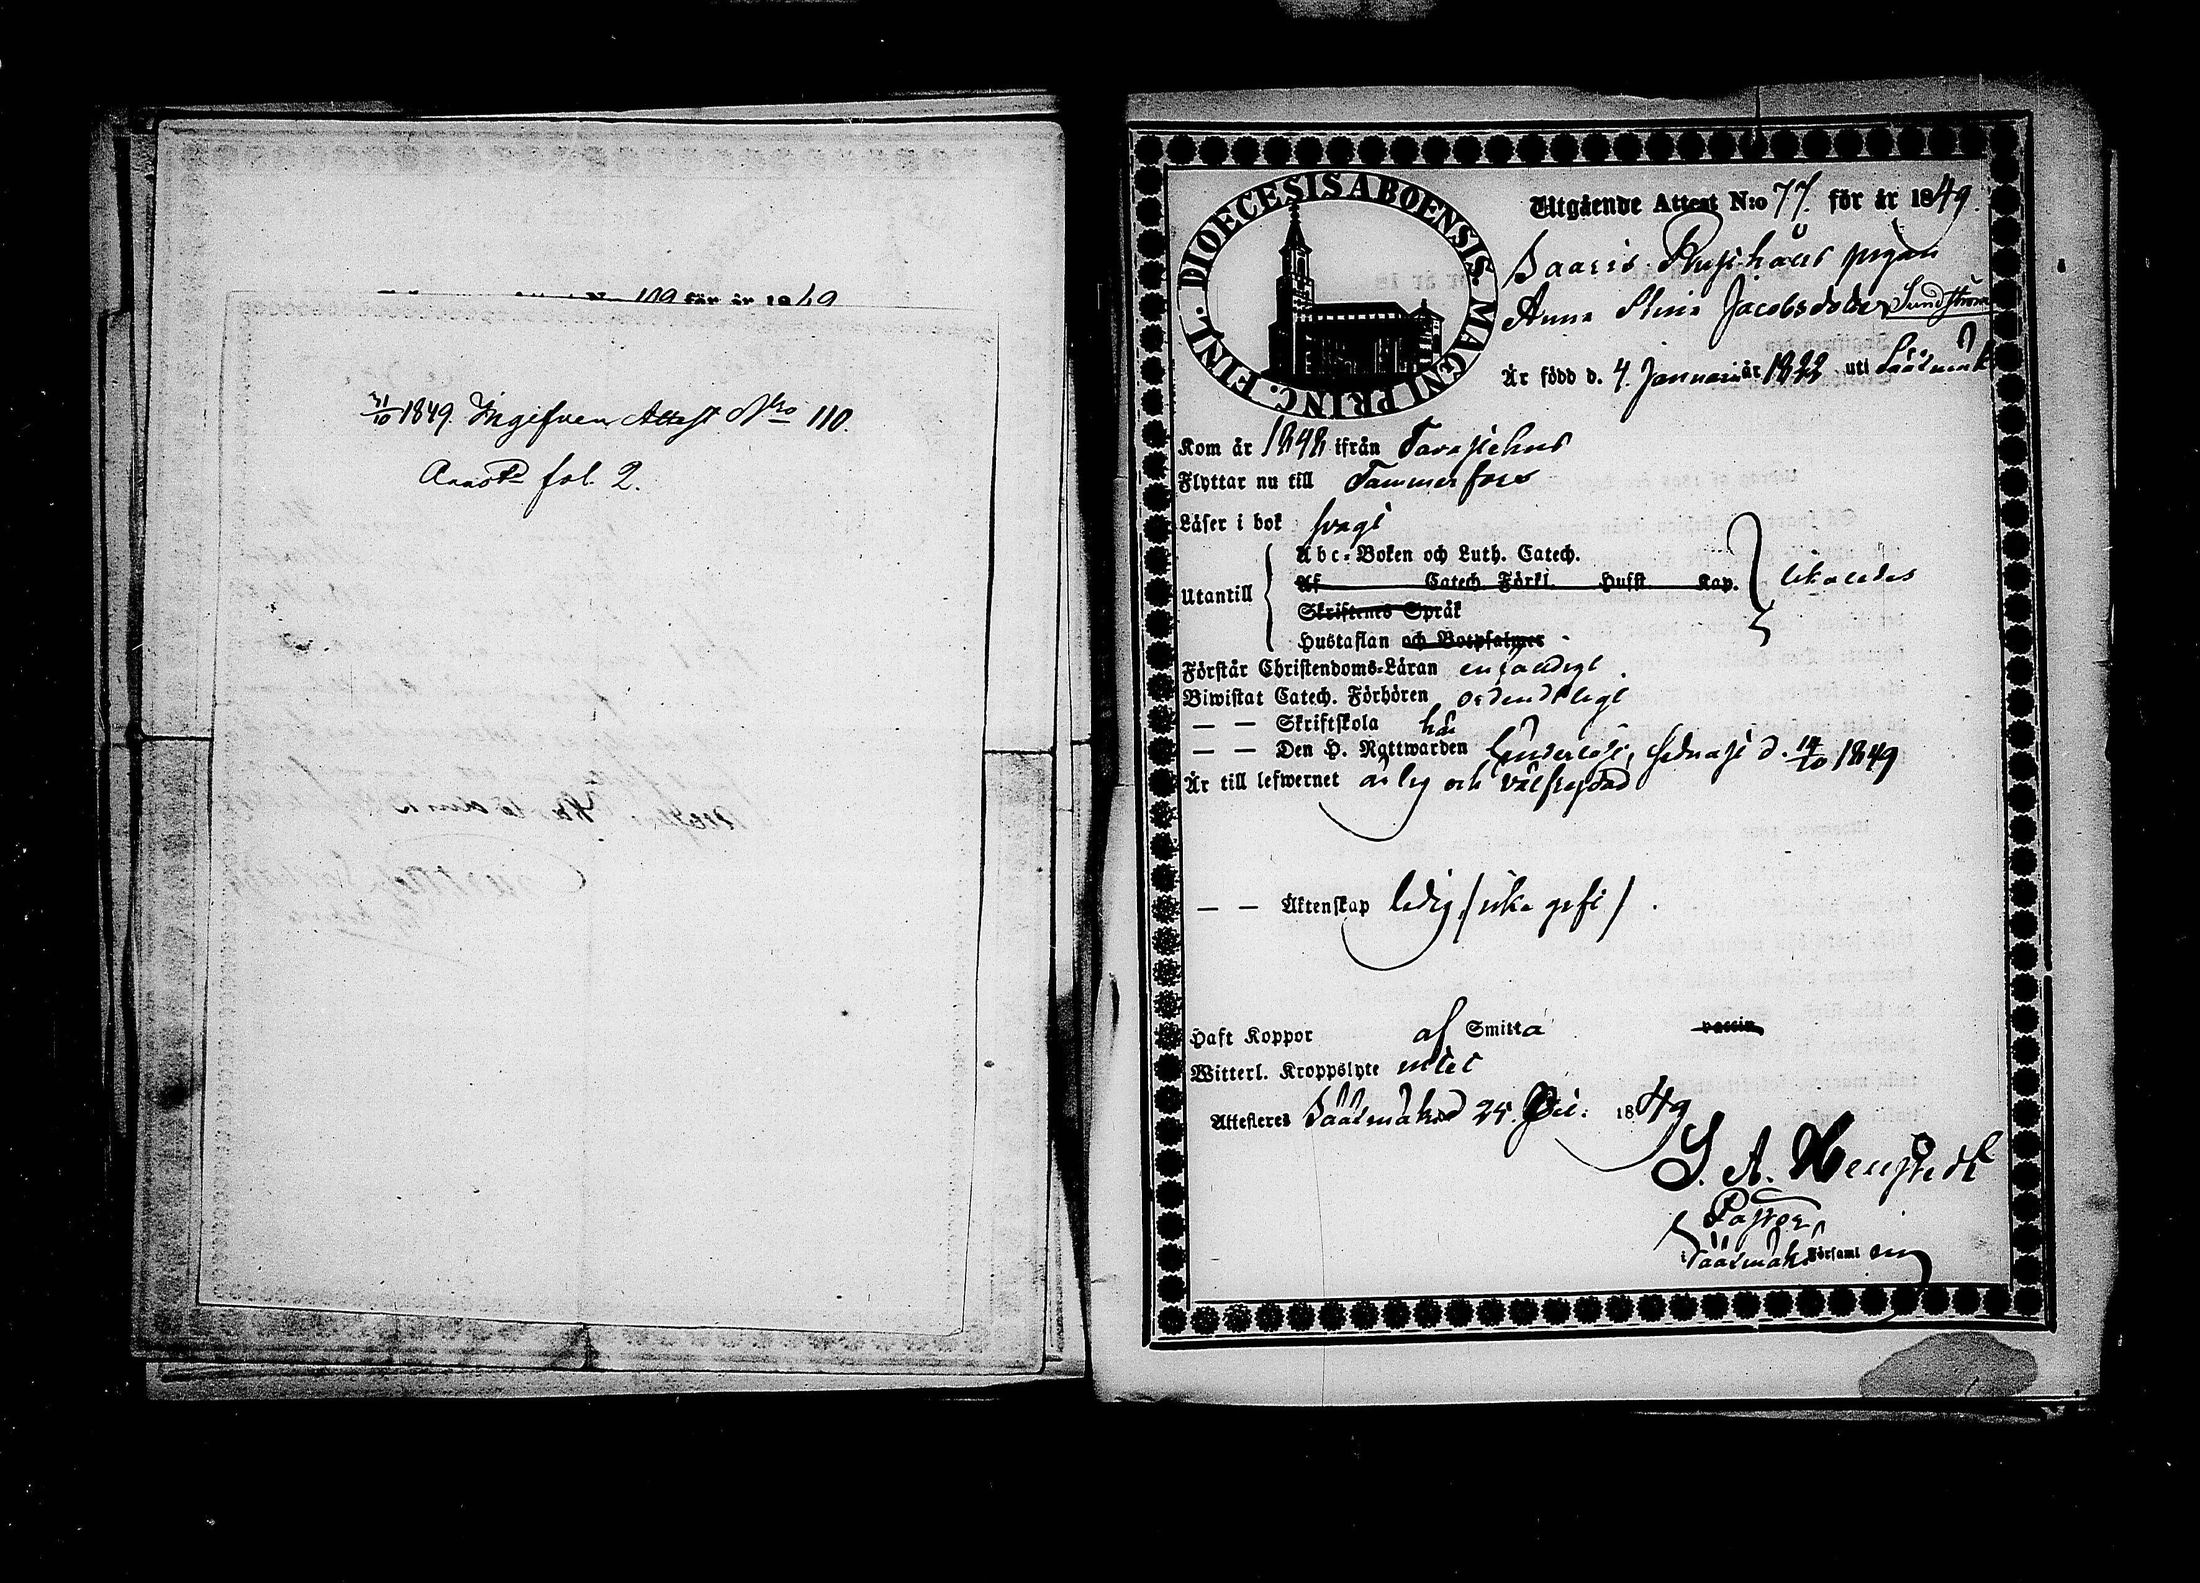 Attest No 109 för år 1849
31/10 1849. Ingifven Attest Nro 110.
fol. 2.
DIOECESIS ABOENSIS. MAGNI PRINC. FINL.
Utgående Attest N:o 77. för år 1849.
Saaris pigan
Anna Stina Jacobsdotter Sundström
Är född d. 4 Januari år 1822 uti Sääxmäki
Kom år 1848 ifrån Tavastehus
Flyttar nu till Tammerfors
Läser i bok svagt
Utantill
Abc-Boken och Luth. Catech.
Af Catech. Förkl. Hufst. Kap.
likaledes
Skriftenes Språk
Hustaflan och Botpsalmer
Förstår Christendoms-Läran enfaldigt.
Biwistat Catech. Förhören ordentligt
— — Skriftskola här
— — Den H. Nattwarden sednast d. 14/10 1849
Är till lefwernet ärlig och välfrejdad
— — Äktenskap ledig /icke gift/.
Haft Koppor af Smitta vaccin
Witterl. Kroppslyte intet
Attesteras Sääxmäki d 25. 1849
Pastor
i Sääxmäki Församl en